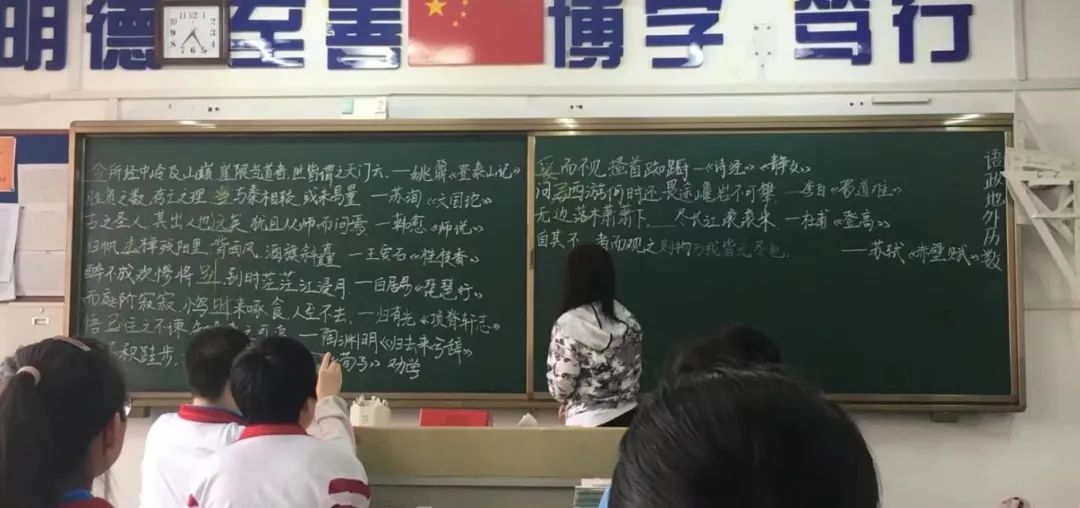 明德 至善 博学 笃行
今所经中岭及山巅,崖限当道者,世皆谓之天门云。—姚鼐《登泰山记》
胜负之数,存亡之理,当与秦相较,或未易量 —苏洵《六国论》
古之圣人,其出人也远矣,犹且从师而问焉. —韩愈《师说》
归帆去棹残阳里,背西风,酒旗斜矗 —王安石《桂枝香》
醉不成欢惨将别,别时茫茫江浸月. —白居易《琵琶行》
而庭阶寂寂,小鸟时来啄食,人至不去. —归有光《项脊轩志》
悟已往之不谏, —陶渊明《归去来兮辞》
积跬步, 《荀子》劝学
而不见,搔首踟蹰 —《诗经》《静女》
问君西游何时还 畏途巉岩不可攀. 李白《蜀道难》
无边落木萧萧下, 尽长江滚滚来. —杜甫《登高》
自其不 者而观之则物与我皆无尽也.
—苏轼《赤壁赋》
语政地外历数